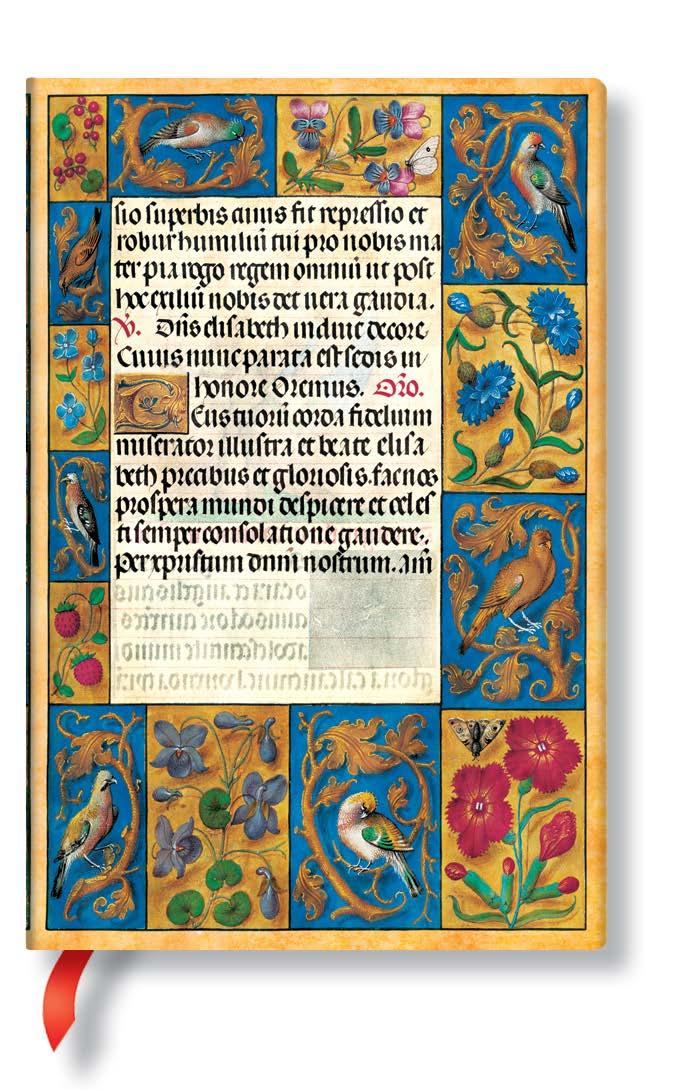 sio superbis cuius fit repressio et
robur humiliū tui pro nobis ma
ter pia rogo regem omniū ut post
hoc exiliū nobis det uera gaudia.
℣. Dn̄s elisabeth induit decore
Cuius nunc parata est sedis in
honore Oremus. Oro.
DEus tuorū corda fidelium
miserator illustra et beate elisa
beth precibus et gloriosis. fac nos
prospera mundi despicere et celes
ti semper consolatione gaudere.
Per xpristum dnm̄ nostrum. Am̄